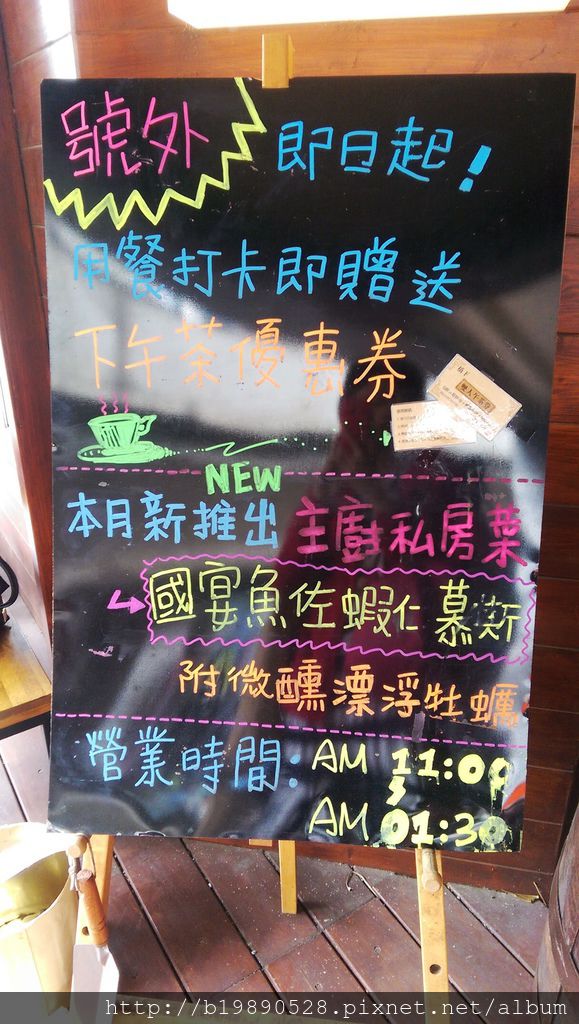 號外 即日起!
用餐打卡即贈送
下午茶優惠券
NEW
本月新推出 主廚私房菜
國宴魚佐蝦仁慕斯
附微醺漂浮牡蠣
營業時間: AM 11:00
AM 01:30
http://b19890528.pixnet.net/album